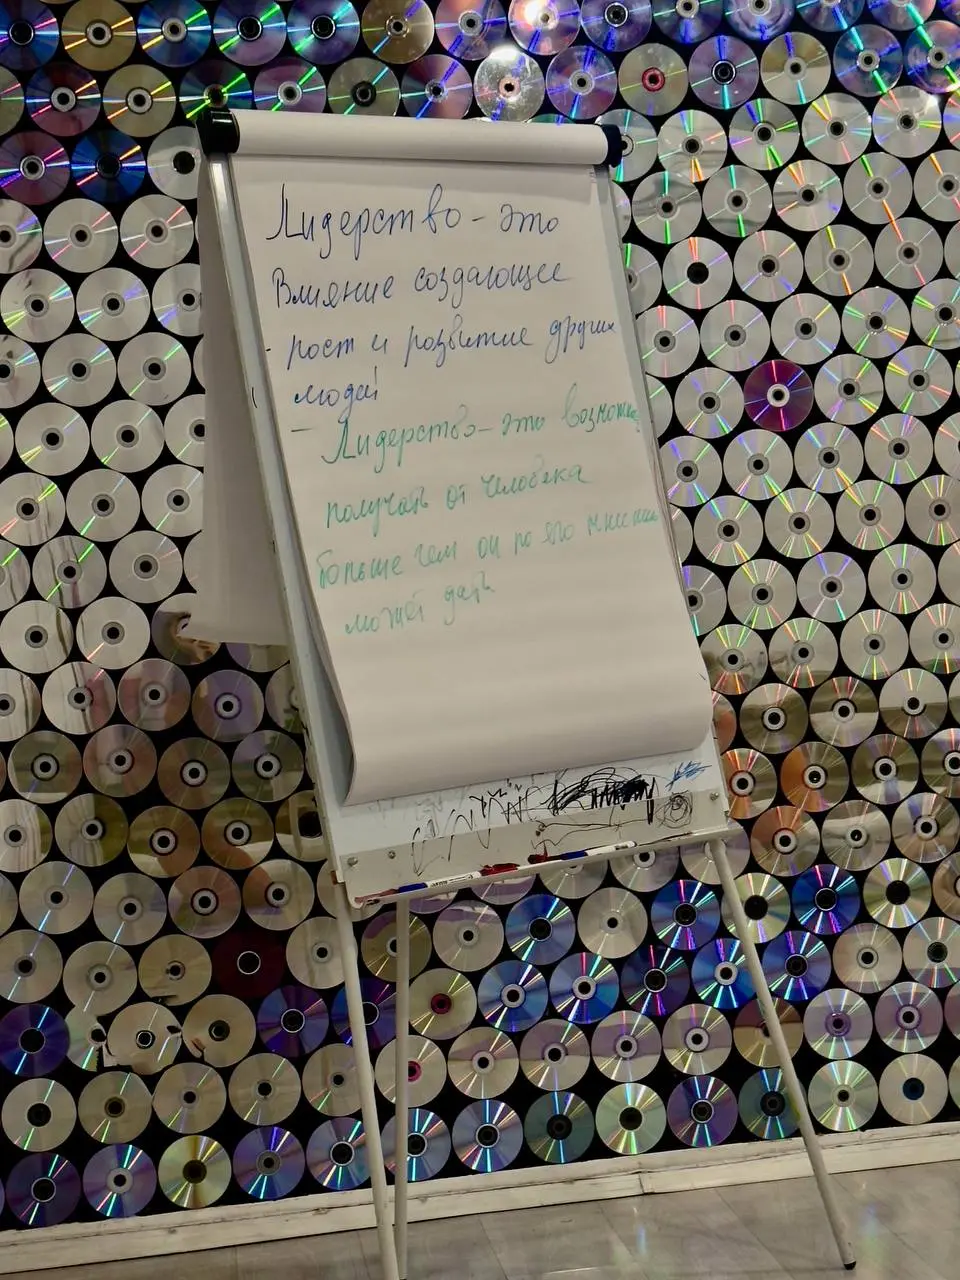 Лидерство - это
Влияние создающее
- рост и развитие других
людей
- Лидерство - это возможн
получать от человека
больше чем он по его мнению
может дать